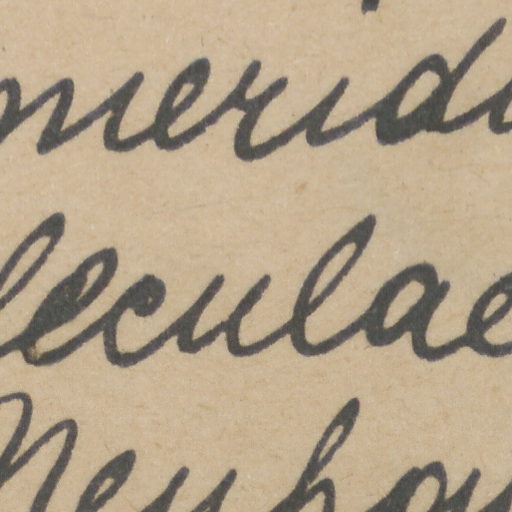 merid
leculae
Neuhau